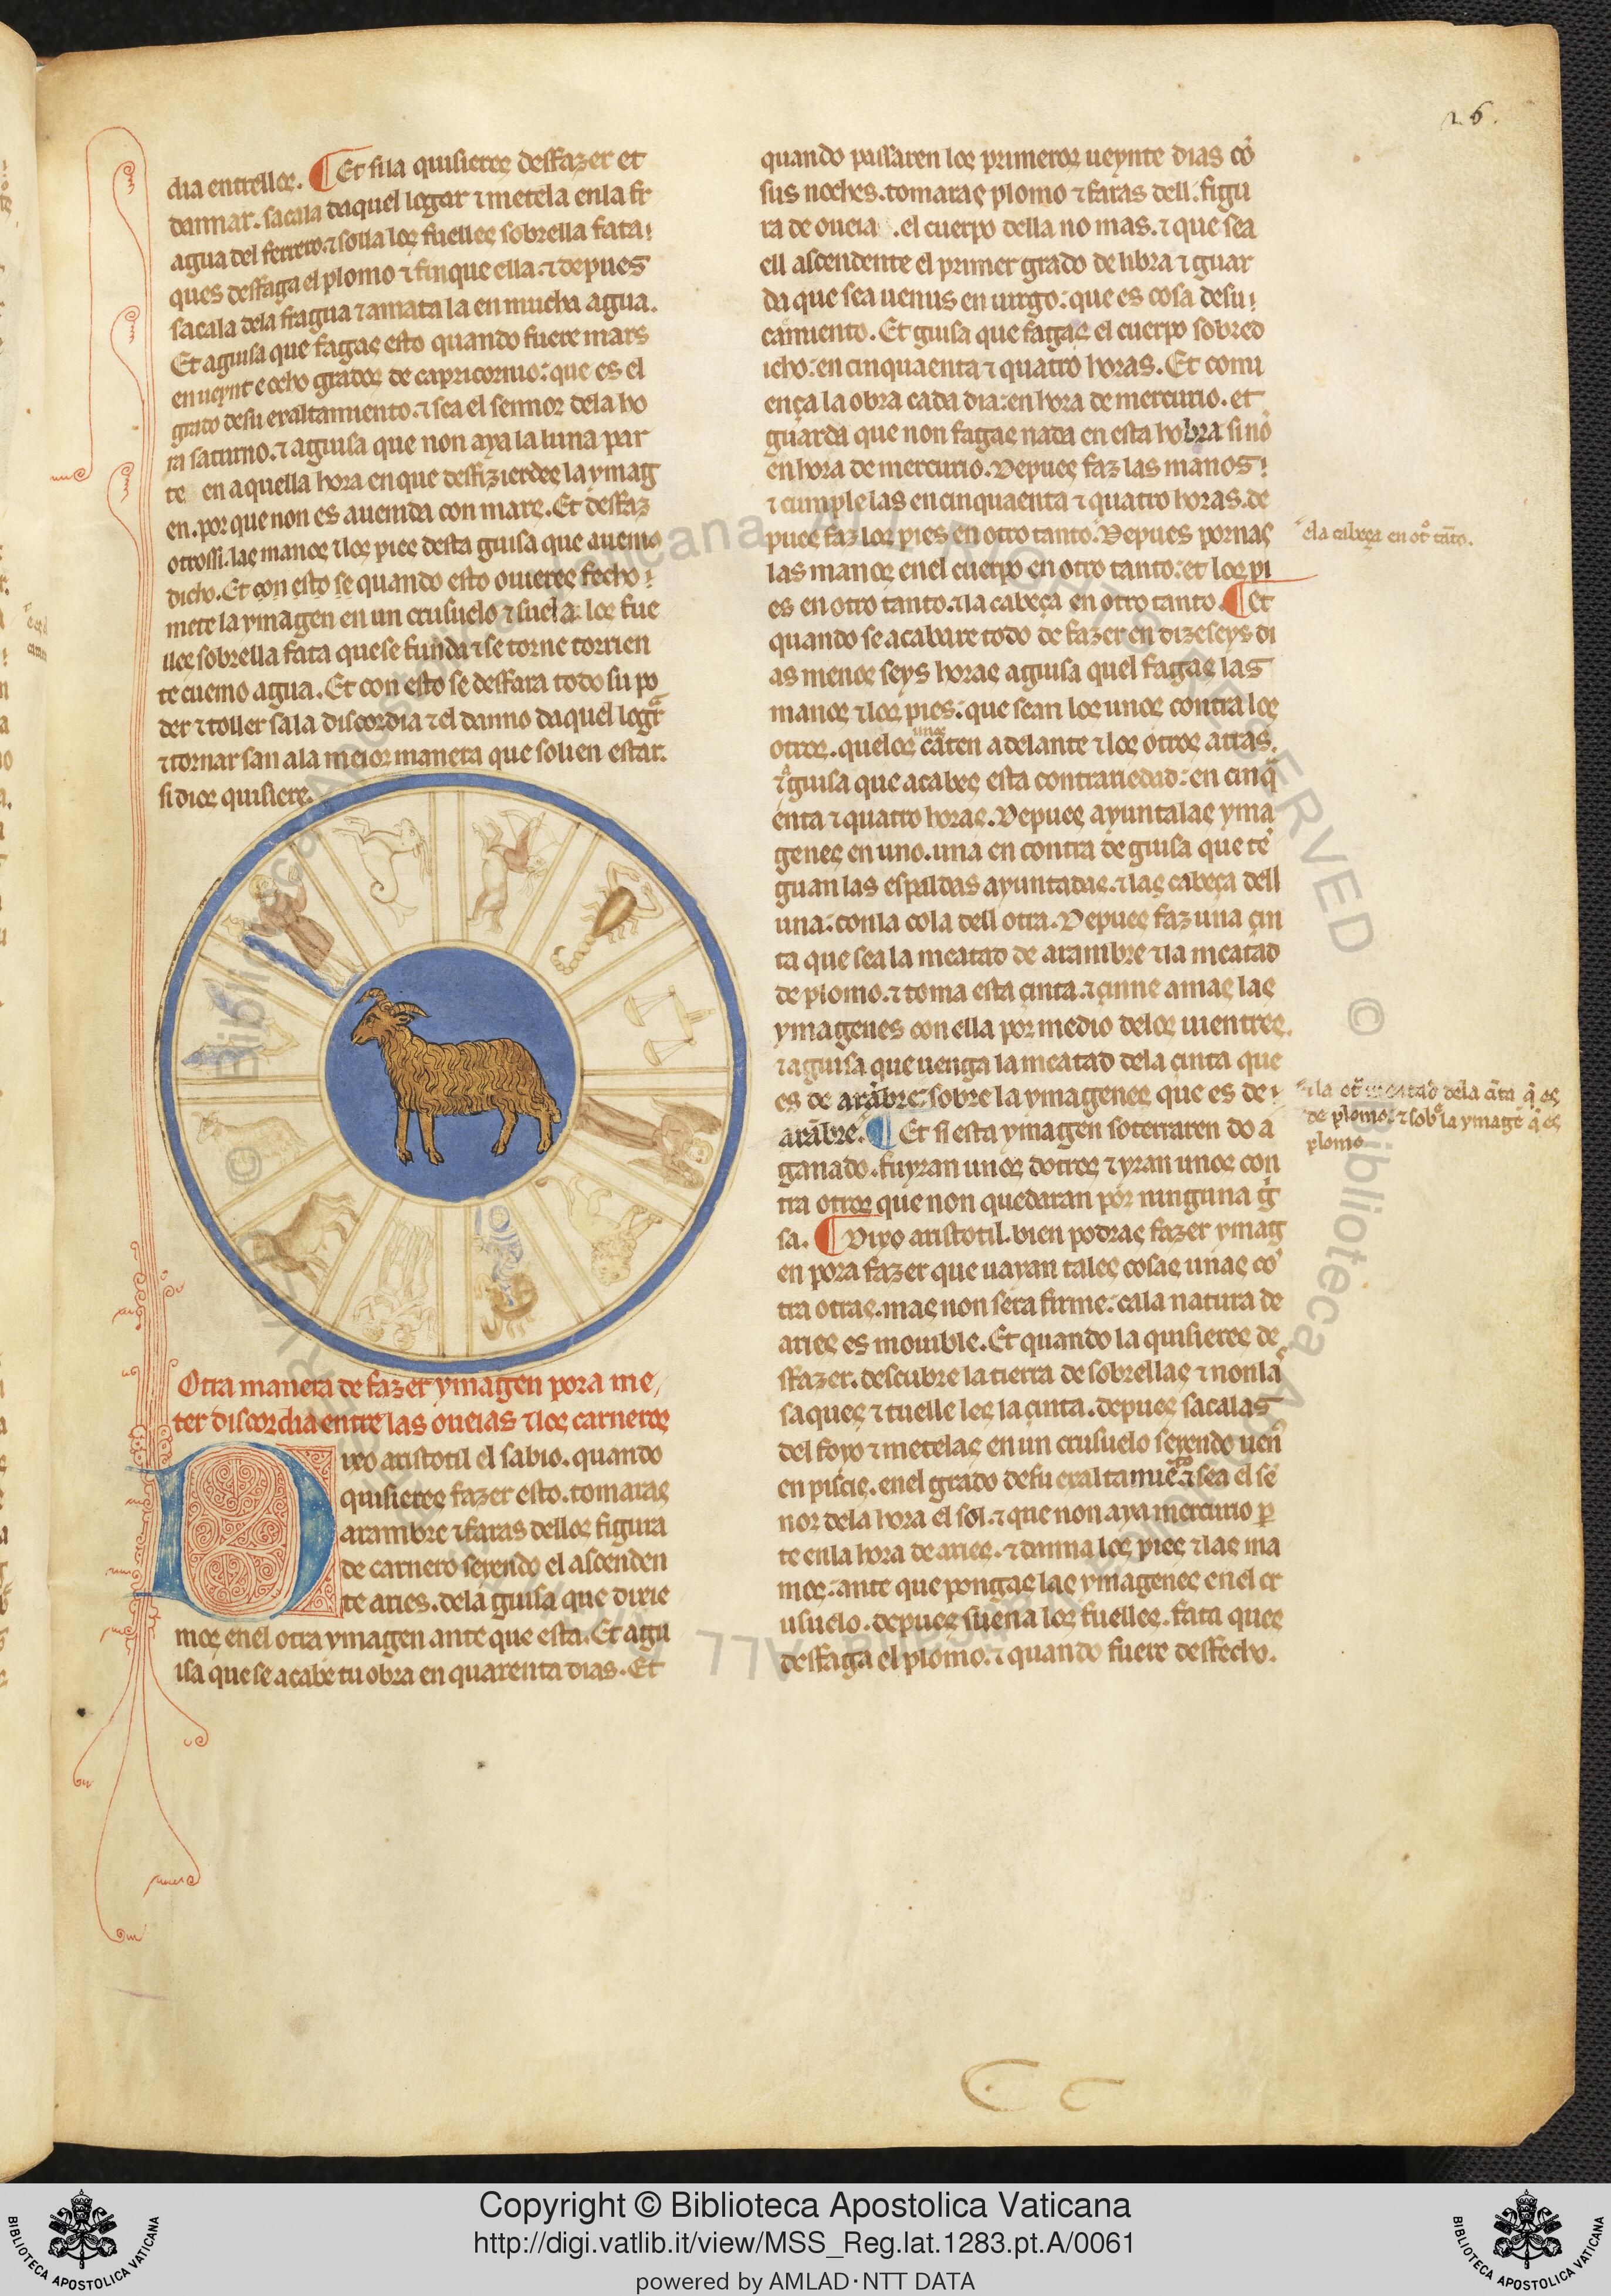 26.
dia entrellos. ¶ Et sila quisieres desfazer et
dannar. sacala daquel logar ⁊ metela enla fr
agua del ferrero. ⁊ solla los fuelles sobrella fata
ques desfaga el plomo ⁊ finque ella. ⁊ depues
sacala dela fragua ⁊ amata la en mucha agua.
Et aguisa que fagas esto quando fuere mars
en ueynte ocho grados de capricornio: que es el
grado desu exaltamiento. ⁊ sea el sennor dela ho
ra saturno. ⁊ aguisa que non aya la luna par
te en aquella hora en que desfizierdes la ymag
en. por que non es auenida con mars. Et desfaz
otrossi. las manos ⁊ los pies desta guisa que auemos
dicho. Et con esto se quando esto ouieres fecho
mete la ymagen en un crusuelo ⁊ suela los fue
lles sobrella fata quese funda ⁊ se torne corrien
te cuemo agua. Et con esto se desfara todo su po
der ⁊ toller sa la discordia ⁊ el danno daquel logar
⁊ tornar san ala meior manera que solien estar.
si dios quisiere.
Otra manera de fazer ymagen pora me
ter discordia entre las oueias ⁊ los carneros
Dixo aristotil el sabio. quando
quisieres fazer esto. tomaras
arambre ⁊ faras dellos figura
de carnero seyendo el ascenden
te aries. dela guisa que dixie
mos enel otra ymagen ante que esta. Et agu
isa que se acabe tu obra en quarenta dias. Et
quando passaren los primeros ueynte dias cõ
sus noches. tomaras plomo ⁊ faras dell. figu
ra de oueia . el cuerpo della no mas. ⁊ que sea
ell ascendente el primer grado de libra ⁊ guar
da que sea uenus en uirgo: que es cosa desu
caimiento. Et guisa que fagas el cuerpo sobred
icho: en cinquaenta ⁊ quatro horas. Et comi
ença la obra cada dia: en hora de mercurio. et
guarda que non fagas nada en esta hobra sinõ
en hora de mercurio. Depues faz las manos
⁊ cumple las en cinquaenta ⁊ quatro horas. de
pues faz los pies en otro tanto. Depues pornas
ela cabeça en otº tãto.
las manos enel cuerpo en otro tanto: et los pi
es en otro tanto. ⁊ la cabeça en otro tanto. ¶ Et
quando se acabare todo de fazer en dizeseys di
as menos seys horas aguisa quel fagas las
manos ⁊ los pies: que sean los unos contra los
otros. quelos unos caten adelante ⁊ los otros atras.
⁊ guisa que acabes esta contrariedad: en cinq̃
enta ⁊ quatro horas. Depues ayuntalas yma
genes en uno. una en contra de guisa que tẽ
guan las espaldas ayuntadas. ⁊ las cabeça dell
una: conla cola dell otra. Depues faz una çin
ta que sea la meatad de arambre ⁊ la meatad
de plomo. ⁊ toma esta çinta. ⁊ çinne amas las
ymagenes con ella por medio delos uientres.
⁊ aguisa que uenga la meatad dela çinta que
es de arãbre: sobre la ymagenes que es de
⁊ la otª meatad dela çĩta q̃ es
de plomo: ⁊ sobº la ymagẽ q̃ es
plomo
arãbre. ¶ Et si esta ymagen soterraren do a
ganado. fuyran unos dotros ⁊ yran unos con
tra otros que non quedaran por ninguna gi
sa. ¶ Dixo aristotil. bien podras fazer ymag
en pora fazer que uayan tales cosas unas cõ
tra otras. mas non sera firme: cala natura de
aries es mouible. Et quando la quisieres de
sfazer. descubre la tierra de sobrellas ⁊ non las
saques ⁊ tuelle les la çinta. depues sacalas
del foyo ⁊ metelas en un crusuelo seyendo uenꝰ
en piscis. enel grado desu exaltamiẽto. ⁊ sea el sẽ
nor dela hora el sol. ⁊ que non aya mercurio ꝑ
te enla hora de aries. ⁊ danna los pies ⁊ las ma
nos: ante que pongas las ymagenes enel cr
usuelo. depues suena los fuelles. fata ques
desfaga el plomo. ⁊ quando fuere desfecho.
Copyright © Biblioteca Apostolica Vaticana
http://digi.vatlib.it/view/MSS_Reg.lat.1283.pt.A/0061
powered by AMLAD·NTT DATA
BIBLIOTECA APOSTOLICA VATICANA
BIBLIOTECA APOSTOLICA VATICANA